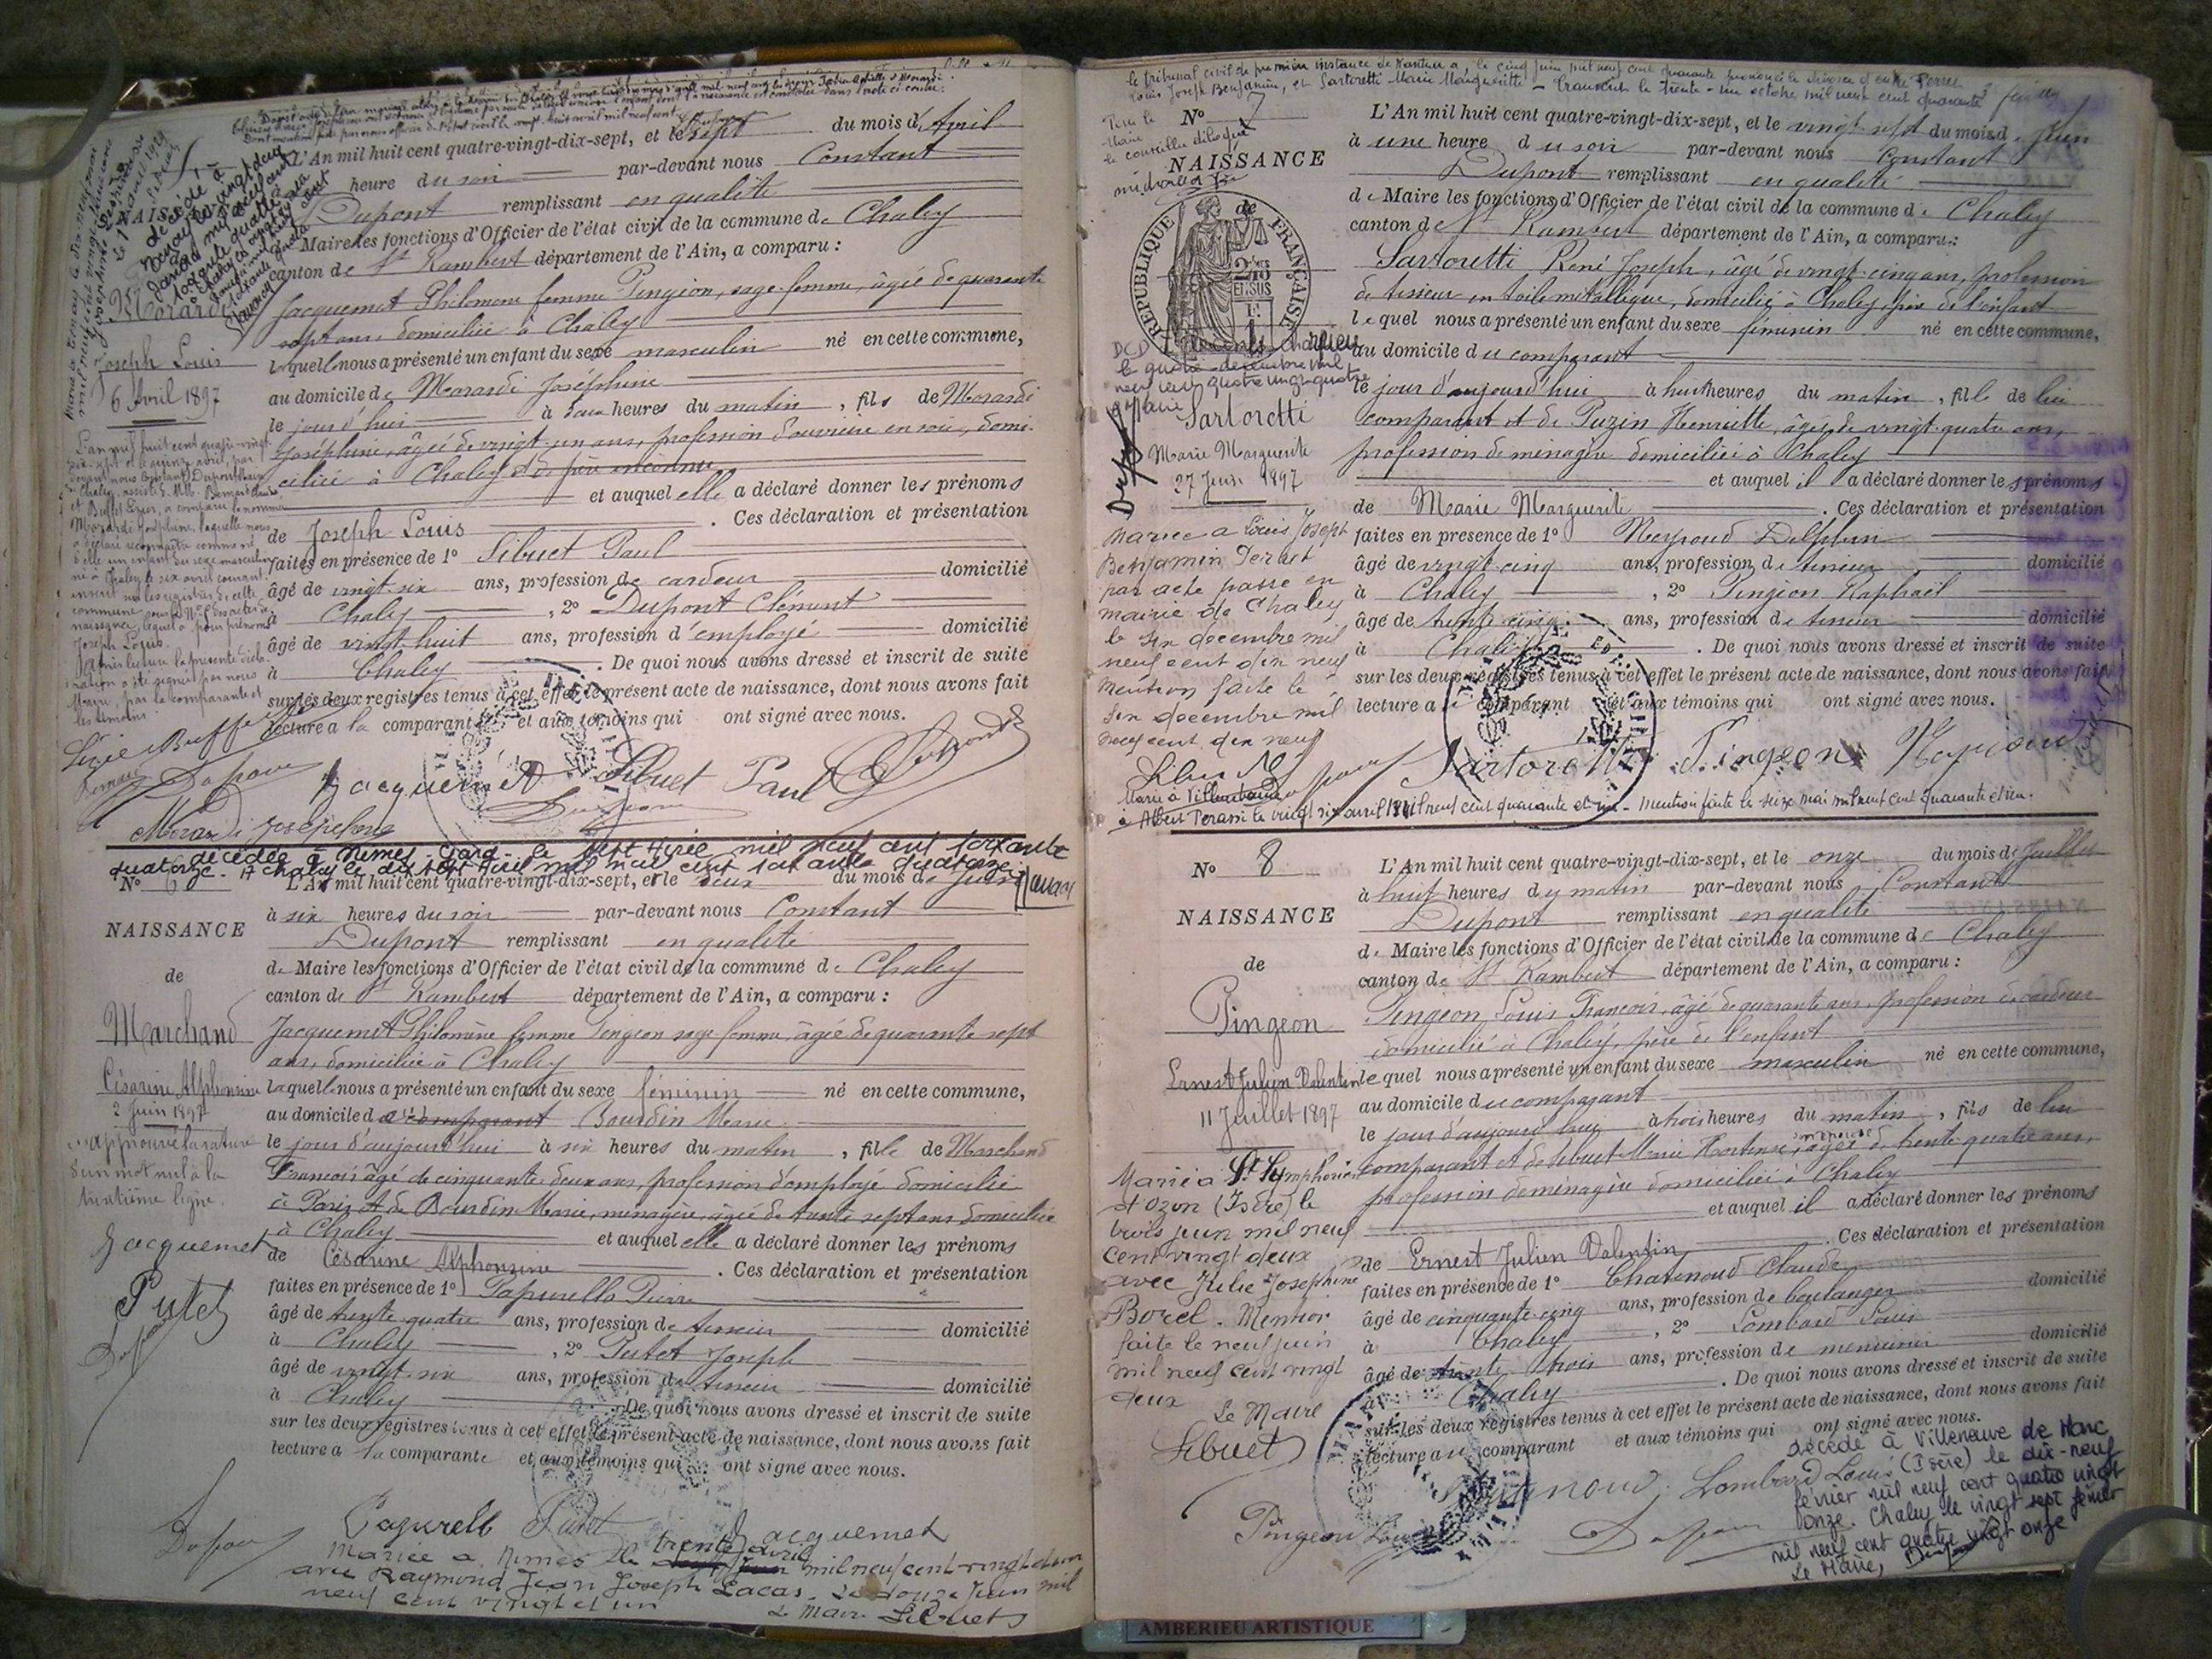 L'An mil huit cent quatre-vingt-dix-sept, et le sept du mois d'Avril
heure du soir par-devant nous Constant
Dupont remplissant en qualité
Maire les fonctions d'Officier de l'état civil de la commune de Chaley
canton de St Rambert département de l'Ain, a comparu :
Jacquemet Philomène femme Pingeon, sage-femme, âgée de quarante
sept ans, domiciliée à Chaley
laquelle nous a présenté un enfant du sexe masculin né en cette commune,
au domicile de Morardi Joséphine
le jour d'hier à deux heures du matin, fils de Morardi
Joséphine, âgée de vingt-un ans, profession d'ouvrière en soie, domi-
ciliée à Chaley et de père inconnu
et auquel elle a déclaré donner les prénoms
de Joseph Louis. Ces déclaration et présentation
faites en présence de 1° Sibuet Paul
âgé de vingt-six ans, profession de cardeur domicilié
à Chaley, 2° Dupont Clément
âgé de vingt-huit ans, profession d'employé domicilié
à Chaley. De quoi nous avons dressé et inscrit de suite
sur les deux registres tenus à cet effet le présent acte de naissance, dont nous avons fait
lecture à la comparante et aux témoins qui ont signé avec nous.
Morardi
Joseph Louis
6 Avril 1897
L'an mil huit cent quatre-vingt-
dix-sept et le quinze avril, par
devant nous Constant Dupont Maire
de Chaley, assisté de MM. Bernard
et Buffet Lizier, a comparu la nommée
Morardi Joséphine, laquelle nous
a déclaré reconnaître comme né
d'elle un enfant du sexe masculin
né à Chaley le six avril courant
inscrit sur les registres de cette
commune sous le N° 5 des actes de
naissance, lequel a pour prénoms
Joseph Louis.
Après lecture la présente décla-
ration a été signée par nous
Maire, par la comparante et
les témoins.
Buffet
Dupont
Jacquemet Sibuet Paul Dupont
Morardi Joséphine
décédée à Nimes Gard le sept Avril mil neuf cent soixante
quatorze. A Chaley le dix sept Avril mil neuf cent soixante quatorze
N° 6 L'An mil huit cent quatre-vingt-dix-sept, et le deux du mois de Juin
NAISSANCE
de
Marchand
Césarine Alphonsine
2 Juin 1897
à six heures du soir par-devant nous Constant
Dupont remplissant en qualité
de Maire les fonctions d'Officier de l'état civil de la commune de Chaley
canton de St Rambert département de l'Ain, a comparu :
Jacquemet Philomène femme Pingeon sage-femme, âgée de quarante sept
ans, domiciliée à Chaley
laquelle nous a présenté un enfant du sexe féminin né en cette commune,
au domicile de comparant Bourdin Marie
le jour d'aujourd'hui à six heures du matin, fille de Marchand
François âgé de cinquante-deux ans, profession d'employé domicilié
à Paris et de Bourdin Marie, ménagère, âgée de trente sept ans domiciliée
à Chaley et auquel elle a déclaré donner les prénoms
de Césarine Alphonsine. Ces déclaration et présentation
faites en présence de 1° Papurello Pierre
âgé de trente quatre ans, profession de tisseur domicilié
à Chaley, 2° Putet Joseph
âgé de vingt-six ans, profession de tisseur domicilié
à Chaley. De quoi nous avons dressé et inscrit de suite
sur les deux registres tenus à cet effet le présent acte de naissance, dont nous avons fait
lecture à la comparante et aux témoins qui ont signé avec nous.
approuvé la rature
d'un mot nul à la
huitième ligne.
Jacquemet
Putet
Dupont
Dupont Papurello Putet Jacquemet
Mariée à Nimes le trente avril mil neuf cent vingt et un
avec Raymond Jean Joseph Lacas. Le douze Juin mil
neuf cent vingt et un
Le Maire Sibuet
le tribunal civil de première instance de Nantua a, le cinq juin mil neuf cent quarante prononcé le divorce d'entre Perret
Louis Joseph Benjamin, et Sartoretti Marie Marguerite - Transcrit le trente-un octobre mil neuf cent quarante
Pour le
Maire
le conseiller délégué
N° 7
NAISSANCE
de
RÉPUBLIQUE FRANÇAISE
Sartoretti
Marie Marguerite
27 Juin 1897
L'An mil huit cent quatre-vingt-dix-sept, et le vingt-sept du mois de Juin
à une heure du soir par-devant nous Constant
Dupont remplissant en qualité
de Maire les fonctions d'Officier de l'état civil de la commune de Chaley
canton de St Rambert département de l'Ain, a comparu :
Sartoretti René Joseph, âgé de vingt-cinq ans, profession
de tisseur en toile métallique, domicilié à Chaley, père de l'enfant
lequel nous a présenté un enfant du sexe féminin né en cette commune,
au domicile du comparant
le jour d'aujourd'hui à huit heures du matin, fille de lui
comparant et de Puzin Henriette, âgée de vingt-quatre ans,
profession de ménagère domiciliée à Chaley
et auquel il a déclaré donner les prénoms
de Marie Marguerite. Ces déclaration et présentation
faites en présence de 1° Neyroud Delphin
âgé de vingt cinq ans, profession de tisseur domicilié
à Chaley, 2° Pingeon Raphaël
âgé de trente-cinq ans, profession de tisseur domicilié
à Chaley. De quoi nous avons dressé et inscrit de suite
sur les deux registres tenus à cet effet le présent acte de naissance, dont nous avons fait
lecture au comparant et aux témoins qui ont signé avec nous.
Mariée à Louis Joseph
Benjamin Perret
par acte passé en
mairie de Chaley
le six décembre mil
neuf cent dix neuf
Mention faite le
six décembre mil
neuf cent dix neuf
Sartoretti Pingeon Neyroud
Mariée à Villeurbanne
à Albert Perassi le vingt six avril mil neuf cent quarante et un - Mention faite le seize mai mil neuf cent quarante et un.
N° 8
NAISSANCE
de
Pingeon
Ernest Julien Valentin
11 Juillet 1897
L'An mil huit cent quatre-vingt-dix-sept, et le onze du mois de Juillet
à huit heures du matin par-devant nous Constant
Dupont remplissant en qualité
de Maire les fonctions d'Officier de l'état civil de la commune de Chaley
canton de St Rambert département de l'Ain, a comparu :
Pingeon Louis François, âgé de quarante ans, profession de cardeur
domicilié à Chaley, père de l'enfant
lequel nous a présenté un enfant du sexe masculin né en cette commune,
au domicile du comparant
le jour d'aujourd'hui à trois heures du matin, fils de lui
comparant et de Sibuet Marie Hortense, son épouse âgée de trente-quatre ans,
profession de ménagère domiciliée à Chaley
et auquel il a déclaré donner les prénoms
de Ernest Julien Valentin. Ces déclaration et présentation
faites en présence de 1° Charnoud Claude
âgé de cinquante-cinq ans, profession de boulanger domicilié
à Chaley, 2° Lombard Louis
âgé de trente trois ans, profession de menuisier domicilié
à Chaley. De quoi nous avons dressé et inscrit de suite
sur les deux registres tenus à cet effet le présent acte de naissance, dont nous avons fait
lecture au comparant et aux témoins qui ont signé avec nous.
Marié à St Symphorien
d'Ozon (Isère) le
trois juin mil neuf
cent vingt deux
avec Julie Josephine
Borel. Mention
faite le neuf juin
mil neuf cent vingt
deux
Le Maire
Sibuet
Pingeon Louis Lombard Louis Dupont
décédé à Villeneuve de Marc
(Isère) le dix-neuf
février mil neuf cent quatre vingt
onze. Chaley le vingt sept février
mil neuf cent quatre vingt onze
Le Maire,
AMBERIEU ARTISTIQUE